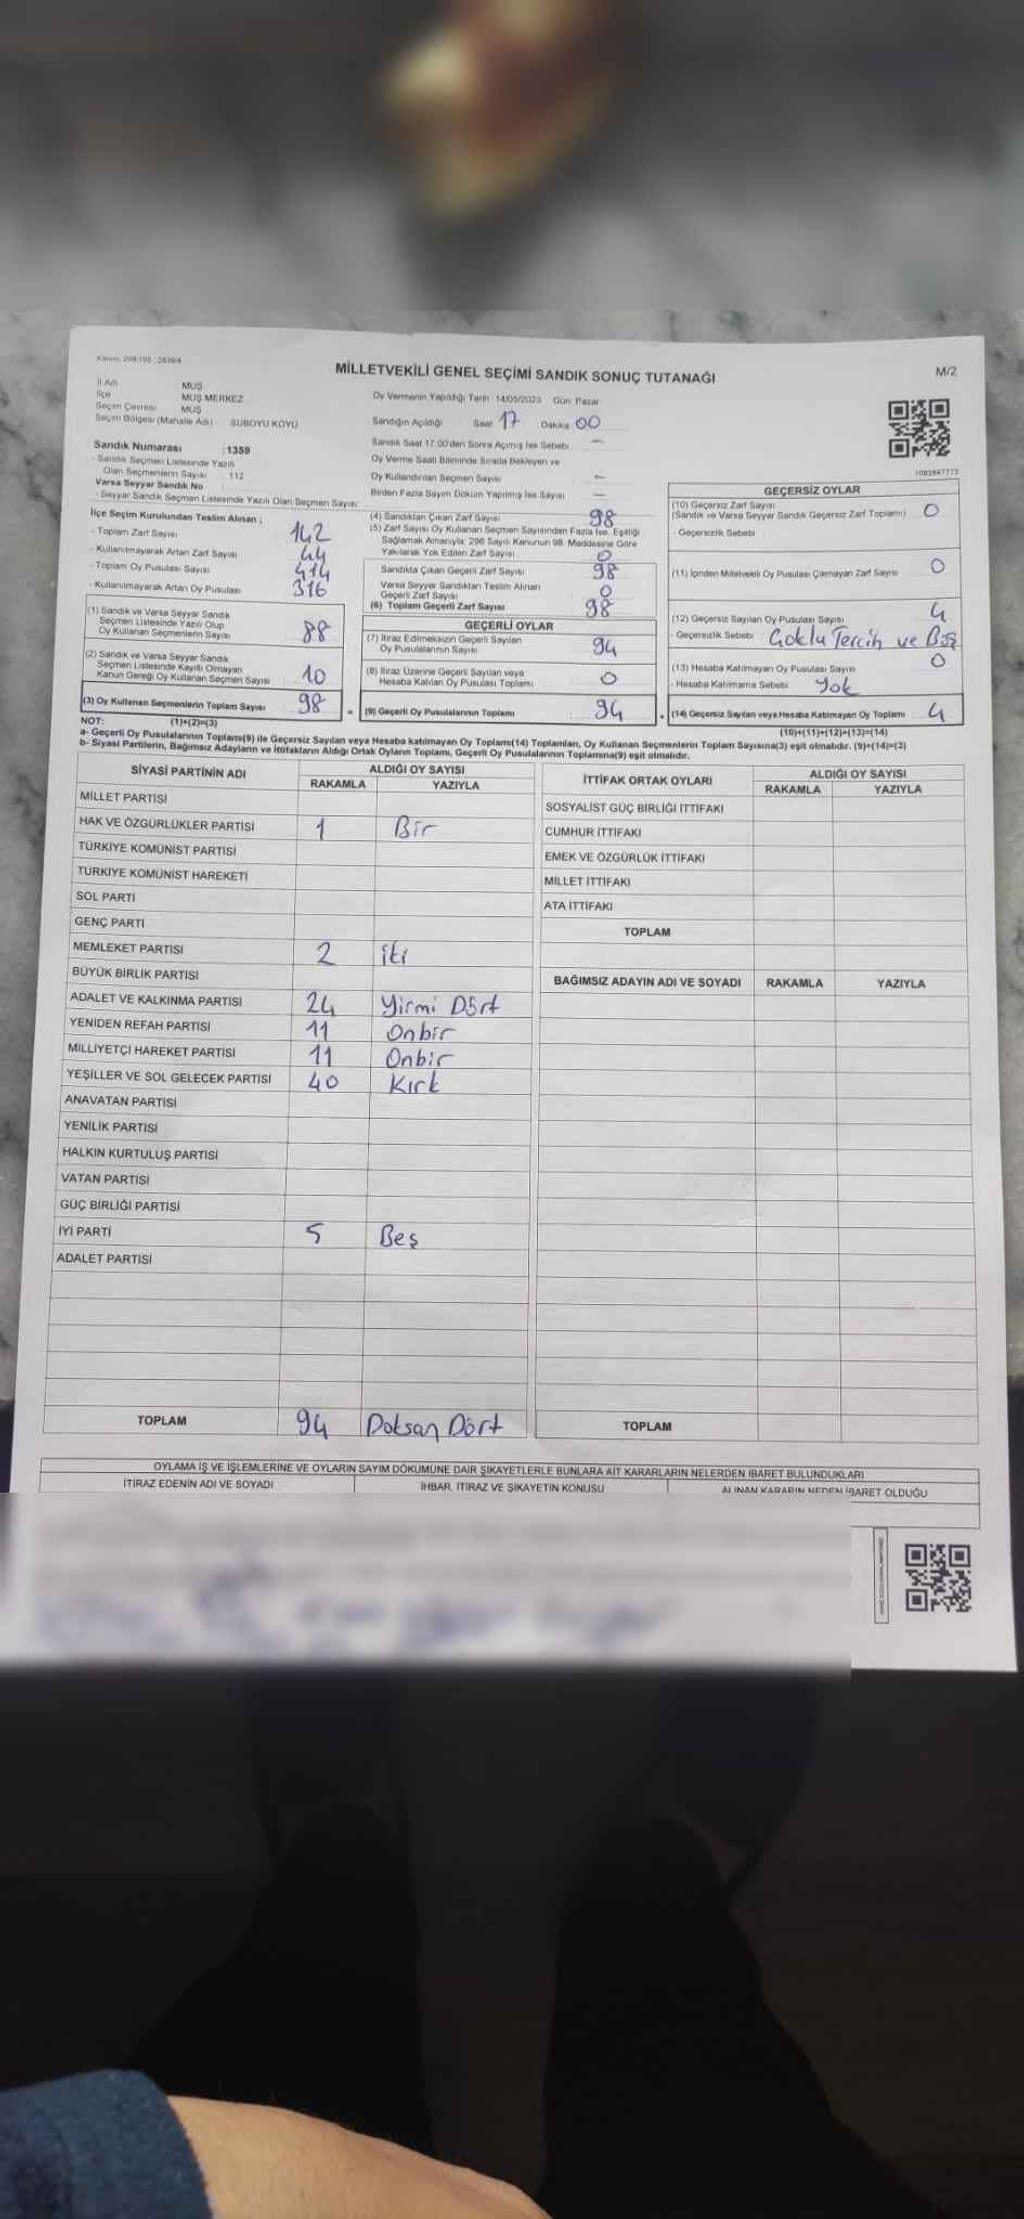 Kanun: 298/105 ; 2839/4
MİLLETVEKİLİ GENEL SEÇİMİ SANDIK SONUÇ TUTANAĞI
M/2
İl Adı MUŞ
İlçe MUŞ MERKEZ
Seçim Çevresi MUŞ
Seçim Bölgesi (Mahalle Adı) SUBOYU KÖYÜ
Sandık Numarası :1359
- Sandık Seçmen Listesinde Yazılı
Olan Seçmenlerin Sayısı : 112
Varsa Seyyar Sandık No
- Seyyar Sandık Seçmen Listesinde Yazılı Olan Seçmen Sayısı
Oy Vermenin Yapıldığı Tarih : 14/05/2023 Gün: Pazar
Sandığın Açıldığı Saat 17 Dakika: 00
Sandık Saat 17:00'den Sonra Açımış İse Sebebi: —
Oy Verme Saati Bitiminde Sırada Bekleyen ve
Oy Kullandırılan Seçmen Sayısı —
Birden Fazla Sayım Döküm Yapılmış İse Sayısı —
İlçe Seçim Kurulundan Teslim Alınan ;
- Toplam Zarf Sayısı 142
- Kullanılmayarak Artan Zarf Sayısı 44
- Toplam Oy Pusulası Sayısı 414
- Kullanılmayarak Artan Oy Pusulası 316
(1) Sandık ve Varsa Seyyar Sandık
Seçmen Listesinde Yazılı Olup
Oy Kullanan Seçmenlerin Sayısı 88
(2) Sandık ve Varsa Seyyar Sandık
Seçmen Listesinde Kayıtlı Olmayan
Kanun Gereği Oy Kullanan Seçmen Sayısı 10
(3) Oy Kullanan Seçmenlerin Toplam Sayısı 98 =
(4) Sandıktan Çıkan Zarf Sayısı 98
(5) Zarf Sayısı Oy Kullanan Seçmen Sayısından Fazla İse, Eşitliği
Sağlamak Amacıyla; 298 Sayılı Kanunun 98. Maddesine Göre
Yakılarak Yok Edilen Zarf Sayısı 0
Sandıkta Çıkan Geçerli Zarf Sayısı 98
Varsa Seyyar Sandıktan Teslim Alınan
Geçerli Zarf Sayısı 0
(6) Toplam Geçerli Zarf Sayısı 98
GEÇERLİ OYLAR
(7) İtiraz Edilmeksizin Geçerli Sayılan
Oy Pusulalarının Sayısı 94
(8) İtiraz Üzerine Geçerli Sayılan veya
Hesaba Katılan Oy Pusulası Toplamı 0
(9) Geçerli Oy Pusulalarının Toplamı : 94 +
GEÇERSİZ OYLAR
(10) Geçersiz Zarf Sayısı
(Sandık ve Varsa Seyyar Sandık Geçersiz Zarf Toplamı) 0
- Geçersizlik Sebebi
(11) İçinden Milletvekili Oy Pusulası Çıkmayan Zarf Sayısı 0
(12) Geçersiz Sayılan Oy Pusulası Sayısı 4
- Geçersizlik Sebebi Çoklu Tercih ve Boş
(13) Hesaba Katılmayan Oy Pusulası Sayısı 0
- Hesaba Katılmama Sebebi Yok
(14) Geçersiz Sayılan veya Hesaba Katılmayan Oy Toplamı 4
NOT: (1)+(2)=(3) (10)+(11)+(12)+(13)=(14)
a- Geçerli Oy Pusulalarının Toplamı(9) ile Geçersiz Sayılan veya Hesaba katılmayan Oy Toplamı(14) Toplamları, Oy Kullanan Seçmenlerin Toplam Sayısına(3) eşit olmalıdır. (9)+(14)=(3)
b- Siyasi Partilerin, Bağımsız Adayların ve İttifakların Aldığı Ortak Oyların Toplamı, Geçerli Oy Pusulalarının Toplamına(9) eşit olmalıdır.
SİYASİ PARTİNİN ADI ALDIĞI OY SAYISI
RAKAMLA YAZIYLA
MİLLET PARTİSİ
HAK VE ÖZGÜRLÜKLER PARTİSİ 1 Bir
TÜRKİYE KOMÜNİST PARTİSİ
TÜRKİYE KOMÜNİST HAREKETİ
SOL PARTİ
GENÇ PARTİ
MEMLEKET PARTİSİ 2 iki
BÜYÜK BİRLİK PARTİSİ
ADALET VE KALKINMA PARTİSİ 24 Yirmi Dört
YENİDEN REFAH PARTİSİ 11 Onbir
MİLLİYETÇİ HAREKET PARTİSİ 11 Onbir
YEŞİLLER VE SOL GELECEK PARTİSİ 40 Kırk
ANAVATAN PARTİSİ
YENİLİK PARTİSİ
HALKIN KURTULUŞ PARTİSİ
VATAN PARTİSİ
GÜÇ BİRLİĞİ PARTİSİ
İYİ PARTİ 5 Beş
ADALET PARTİSİ
TOPLAM 94 Doksan Dört
İTTİFAK ORTAK OYLARI ALDIĞI OY SAYISI
RAKAMLA YAZIYLA
SOSYALİST GÜÇ BİRLİĞİ İTTİFAKI
CUMHUR İTTİFAKI
EMEK VE ÖZGÜRLÜK İTTİFAKI
MİLLET İTTİFAKI
ATA İTTİFAKI
TOPLAM
BAĞIMSIZ ADAYIN ADI VE SOYADI RAKAMLA YAZIYLA
TOPLAM
OYLAMA İŞ VE İŞLEMLERİNE VE OYLARIN SAYIM DÖKÜMÜNE DAİR ŞİKAYETLERLE BUNLARA AİT KARARLARIN NELERDEN İBARET BULUNDUKLARI
İTİRAZ EDENİN ADI VE SOYADI İHBAR, İTİRAZ VE ŞİKAYETİN KONUSU ALINAN KARARIN NEDEN İBARET OLDUĞU